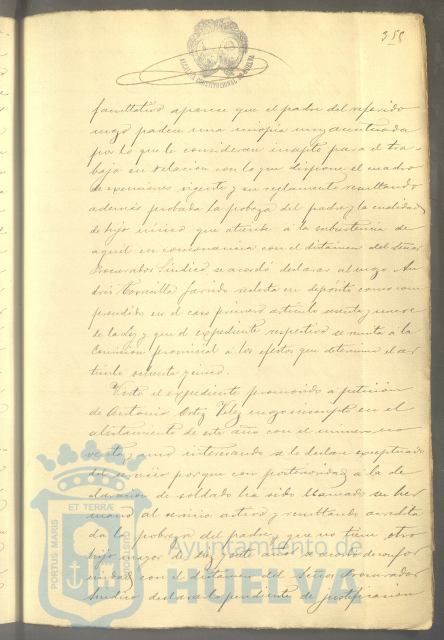 355
ALCALDIA CONSTITUCIONAL DE HUELVA
facultativo aparece que el padre del referido
mozo padece una miopia muy acentuada
por lo que le consideran inapto para el tra-
bajo en relacion con lo que dispone el cuadro
de exenciones vigente y su reglamento resultando
además probada la pobreza del padre y la cualidad
de hijo único que atiende a la subsistencia de
aquel en consonancia con el dictamen del Señor
Procurador Síndico se acordó declarar al mozo An
drés Garrido recluta en depósito como com
prendido en el caso primero artículo sesenta y nueve
de la Ley y que el expediente respectivo se remita a la
Comision provincial a los efectos que determina el ar
tículo ochenta y cinco.
Visto el expediente promovido a petición
de Antonio Ortiz Velez mozo inscripto en el
alistamiento de este año con el número no
venta, que interesando se le declare exceptuado
del servicio porque con posterioridad a la de
claración de soldado ha sido llamado su her
mano al servicio activo y resultando acredita
da la pobreza del padre y que no tiene otro
hijo mayor de diez y siete años se acordó de confor
midad con el dictamen del Señor Procurador
Síndico declararlo pendiente de justificación
ET TERRAE
PORTUS MARIS
CUSTODIA
Ayuntamiento de
HUELVA